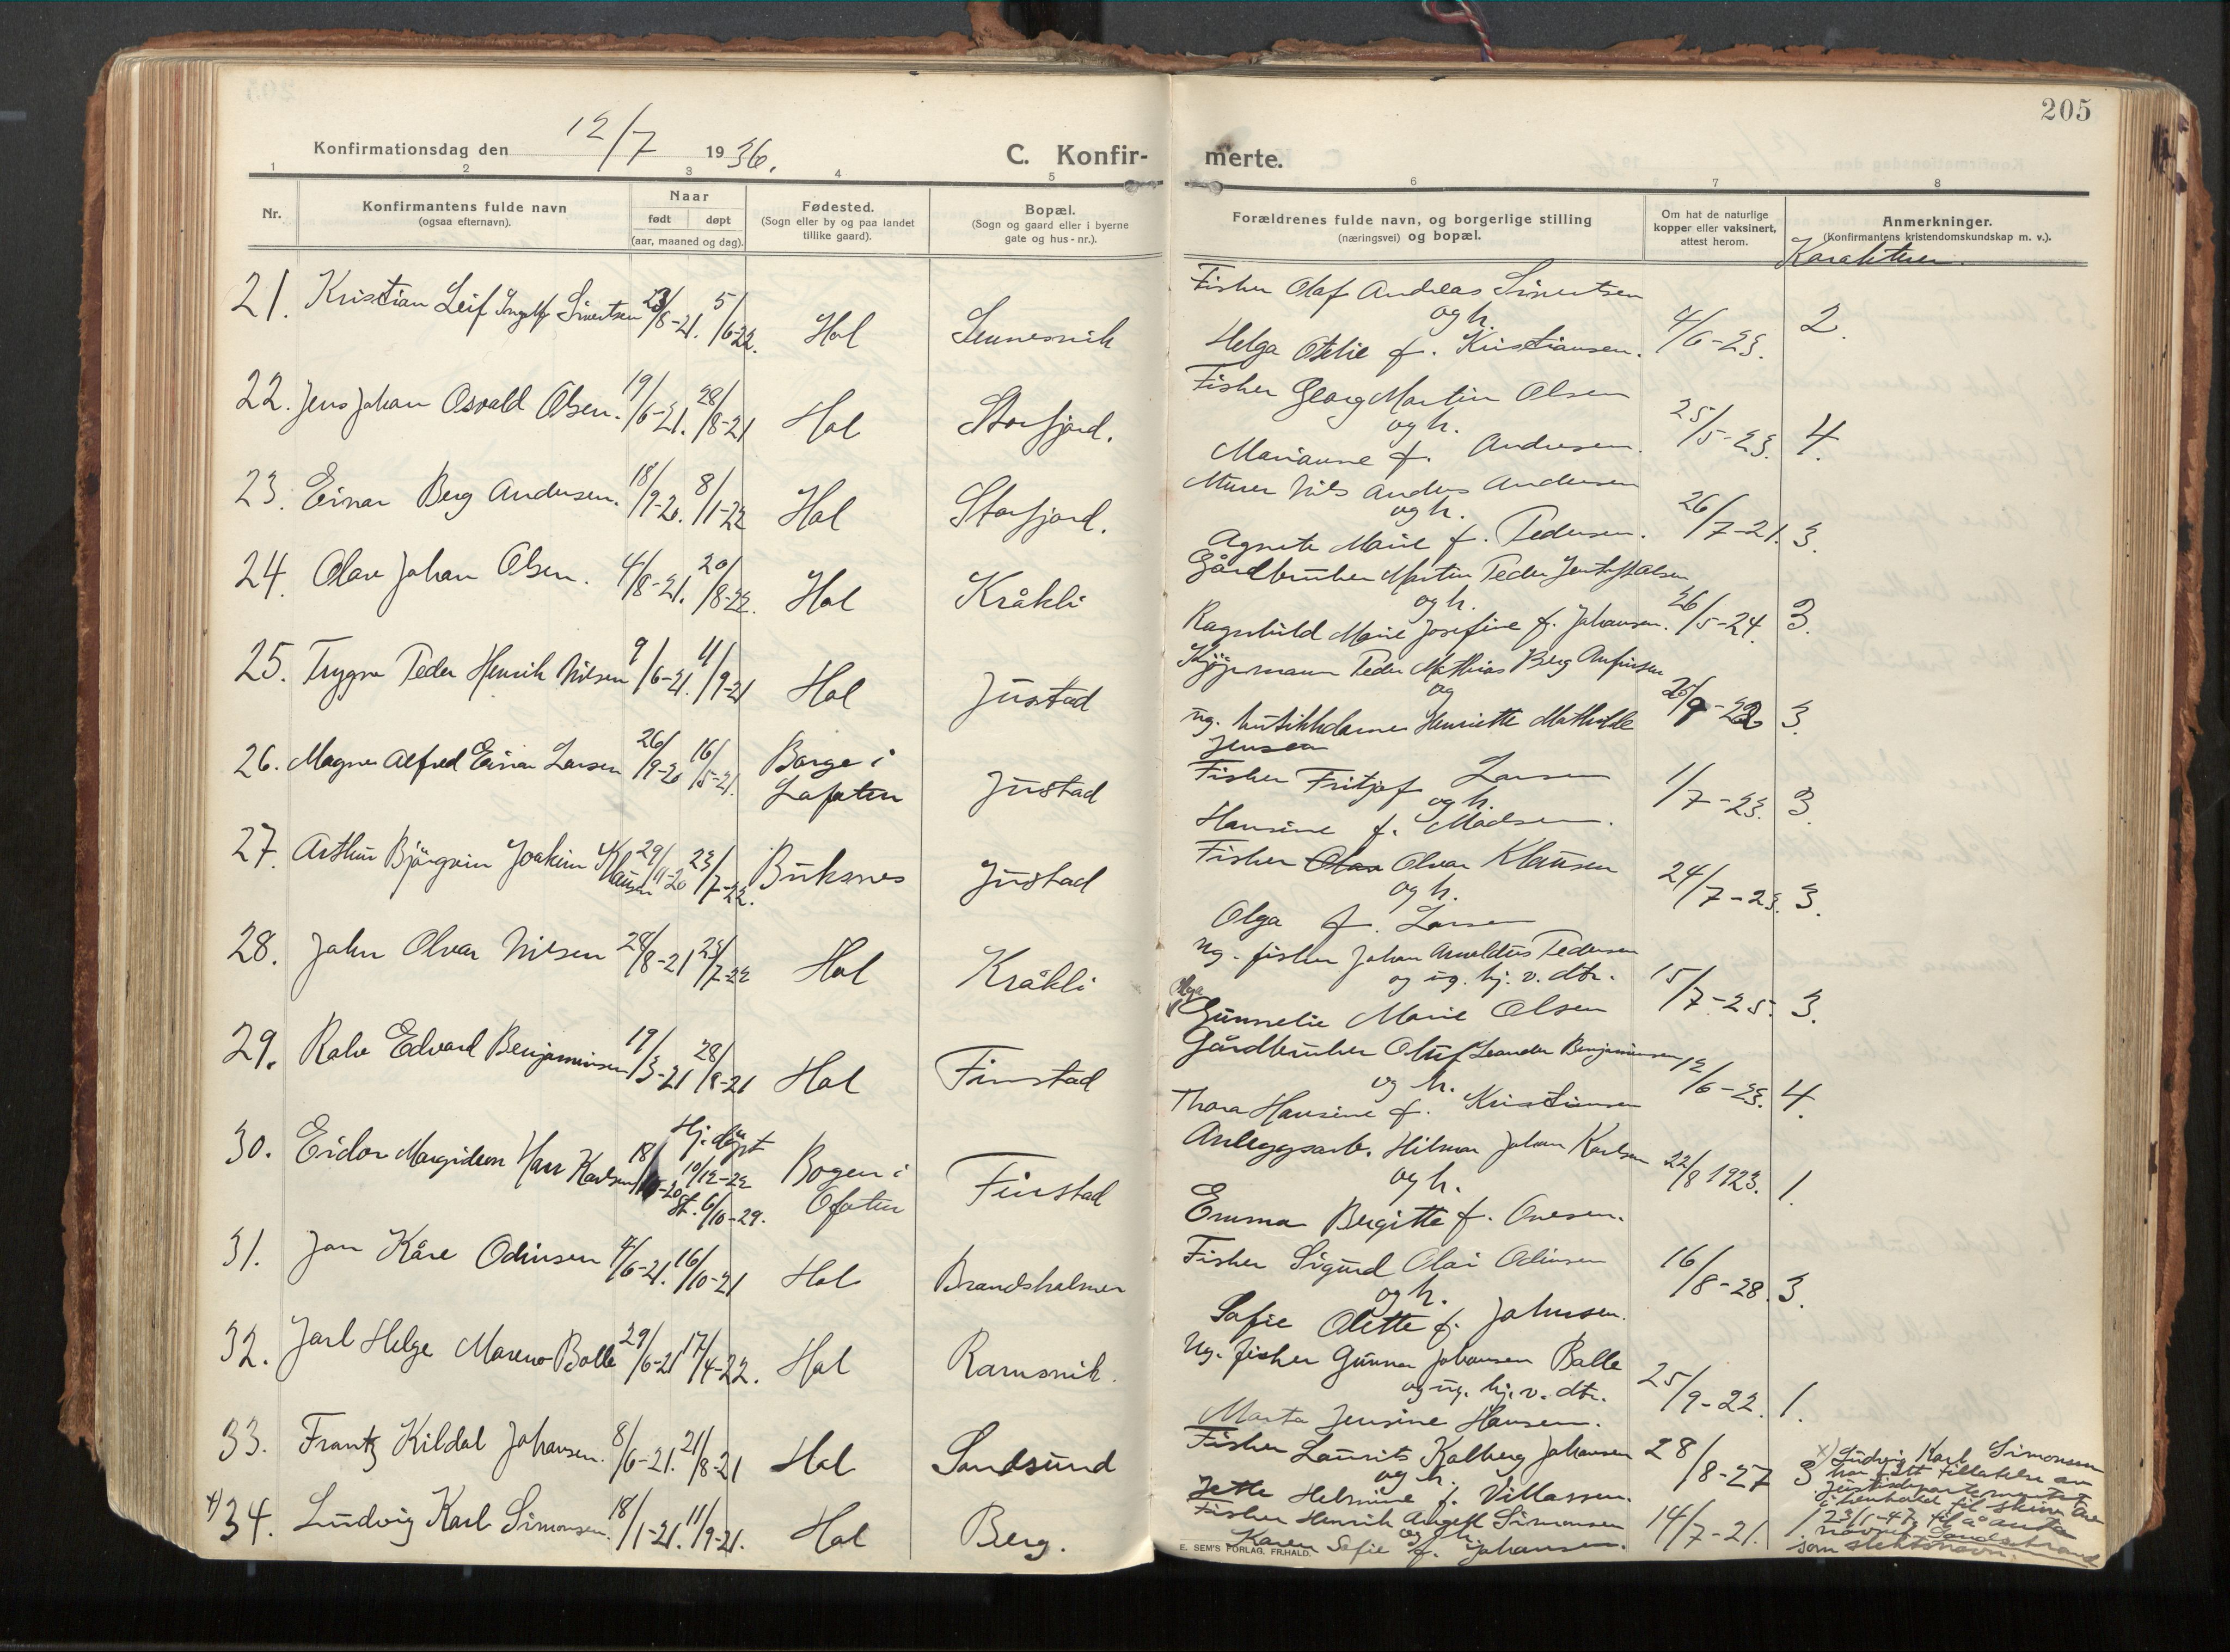 205
Konfirmationsdag den 12/7 1936.
C. Konfir-
merte.
1 2 3 4 5 6 7 8
Nr.
Konfirmantens fulde navn
(ogsaa efternavn).
Naar
født døpt
(aar, maaned og dag).
Fødested.
(Sogn eller by og paa landet
tillike gaard).
Bopæl.
(Sogn og gaard eller i byerne
gate og hus-nr.).
Forældrenes fulde navn, og borgerlige stilling
(næringsvei) og bopæl.
Om hat de naturlige
kopper eller vaksinert,
attest herom.
Anmerkninger.
(Konfirmantens kristendomskundskap m. v.).
Karakterer.
21. Kristian Leif Ingolf Sivertsen 23/8-21. 5/6-22. Hol
Fisker Olaf Andreas Sivertsen
og h.
Helga Otelie f. Kristiansen. 4/6-23. 2.
22. Jens Johan Osvald Olsen. 19/6-21. 28/8-21 Hol Storfjord.
Fisker Georg Martin Olsen
og h.
Marianne f. Andersen. 25/5-23. 4.
23. Einar Berg Andersen. 18/9-20. 8/1-22 Hol Storfjord.
Murer Nils Anders Andersen
og h.
Agnete Marie f. Pedersen. 26/7-21. 3.
24. Olav Johan Olsen. 4/8-21. 20/8-22. Hol Kråkli
Gårdbruker Martin Peder Olsen
og h.
Ragnhild Marie Josefine f. Johansen. 26/5-24. 3.
25. Trygve Peder Henrik Nilsen 9/6-21. 4/9-21 Hol Justad
Peder Mathias Berg Anfinsen
og
ug. butikkdame Henriette Mathilde
Jensen 3.
26. Magne Alfred Einar Larsen 26/9-20 16/5-21. Borge i
Lofoten Justad
Fisker Fritjof Larsen
og h.
Hansine f. Madsen. 1/7-23. 3.
27. Arthur Bjørgvin Joakim Klausen 29/11-20 23/7-22. Buksnes Justad
Fisker Olav Olvar Klausen
og h.
Olga f. Larsen 24/7-23. 3.
28. John Olvar Nilsen 28/8-21 23/7-22 Hol Kråkli
Ug. fisker Johan Arnoldus Pedersen
og ug. hj. v. dtr.
Olga
Gunnelie Marie Olsen 15/7-25. 3.
29. Ralv Edvard Benjaminsen 19/3-21 28/8-21 Hol Finstad
Gårdbruker Oluf Leander Benjaminsen
og h.
Thora Hansine f. Kristiansen 12/6-23. 4.
30. Eidor Margideon Hans Karlsen Hj. døpt
10/12-22
St. 6/10-29. Bogen i
Ofoten Finstad
Anleggsarb. Hilmar Johan Karlsen
og h.
Emma Bergitte f. Onesen. 22/8 1923. 1.
31. Jan Kåre Odinsen 4/6-21. 16/10-21 Hol Brandsholmen
Fisker Sigurd Olai Odinsen
og h.
Sofie Olette f. Johnsen. 16/8-28. 3.
32. Jarl Helge Mareno Bolle 29/6-21 17/4-22. Hol Ramsvik.
Ug. fisker Gunnar Johansen Balle
og ug. hj. v. dtr.
Marta Jensine Hansen. 25/9-22. 1.
33. Frantz Kildal Johansen. 8/6-21. 21/8-21 Hol Sandsund
Fisker Laurits Kalberg Johansen
og h.
Jette Helmine f. Villassen. 28/8-27 3
x) 34. Ludvig Karl Simonsen. 18/1-21. 11/9-21. Hol Berg.
Fisker Henrik Angell Simonsen
og h.
Karen Sofie f. Johansen. 14/7-21. 1.
x) Ludvig Karl Simonsen
har fått tillatelse av
justisdepartementet
i henhold til skriv. av
23/1-47 til å anta
navnet Sandstrand
som slektsnavn.
E. SEM'S FORLAG, FR.HALD.